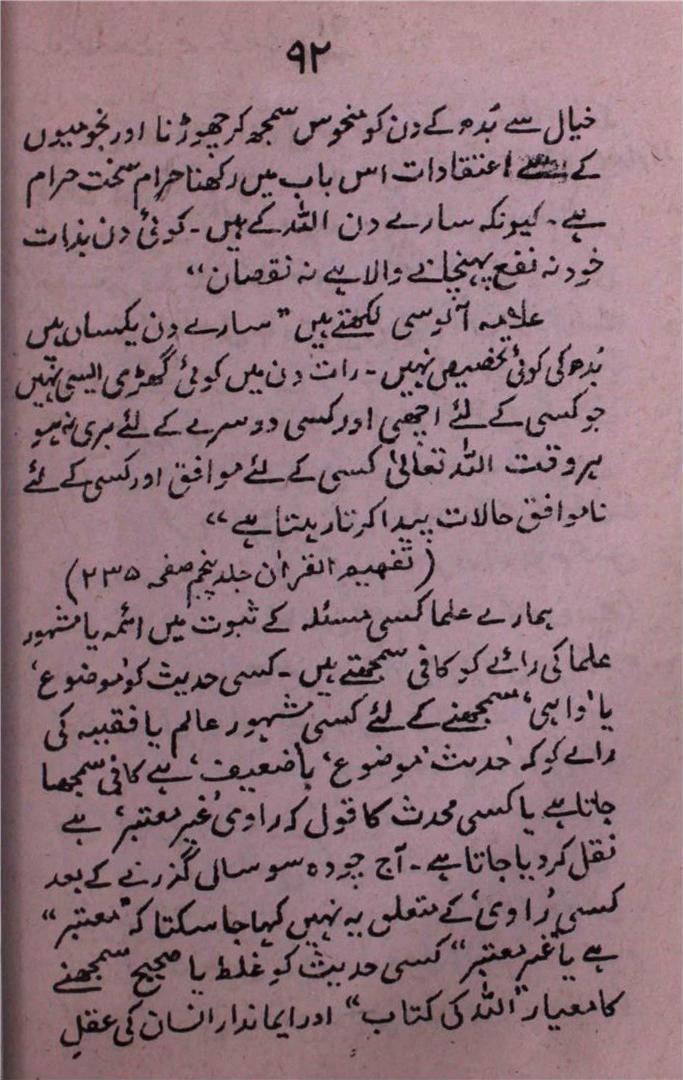 ۹۲
خیال سے بُدھ کے دن کو منحوس سمجھ کر چھوڑنا اور نجومیوں
کے سے اعتقادات اس باب میں رکھنا حرام سخت حرام
ہے۔ کیونکہ سارے دن اللہ کے ہیں۔ کوئی دن بذات
خود نہ نفع پہنچانے والا ہے نہ نقصان“
علامہ آلوسی لکھتے ہیں ”سارے دن یکساں ہیں
بُدھ کی کوئی تخصیص نہیں۔ رات دن میں کوئی گھڑی ایسی نہیں
جو کسی کے لئے اچھی اور کسی دوسرے کے لئے بری نہ ہو
ہر وقت اللہ تعالیٰ کسی کے لئے موافق اور کسی کے لئے
ناموافق حالات پیدا کرتا رہتا ہے“
(تفہیم القرآن جلد پنجم صفحہ ۲۳۵)
ہمارے علما کسی مسئلہ کے ثبوت میں ائمہ یا مشہور
علما کی رائے کو کافی سمجھتے ہیں۔ کسی حدیث کو ’موضوع‘
یا ’واہی‘ سمجھنے کے لئے کسی مشہور عالم یا فقیہ کی
رائے کو کہ ’حدیث ’موضوع‘ یا ’ضعیف‘ ہے کافی سمجھا
جاتا ہے یا کسی محدث کا قول کہ راوی ’غیر معتبر‘ ہے
نقل کر دیا جاتا ہے۔ آج چودہ سو سال گذرنے کے بعد
کسی ’راوی‘ کے متعلق یہ نہیں کہا جا سکتا کہ ”معتبر“
ہے یا ”غیر معتبر“ کسی حدیث کو غلط یا صحیح سمجھنے
کا معیار ”اللہ کی کتاب“ اور ایماندار انسان کی عقلِ